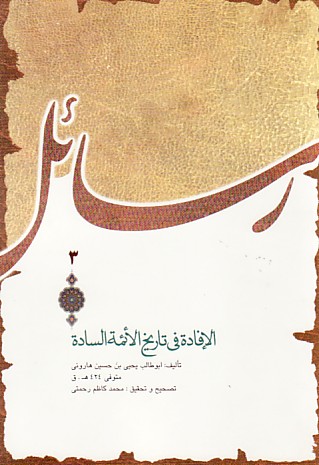 رسائل
۳
الإفادة في تاريخ الأئمة السادة
تأليف: ابوطالب يحيى بن حسين هارونى
متوفى ۴۲۴ هـ . ق
تصحيح و تحقيق : محمد كاظم رحمتى